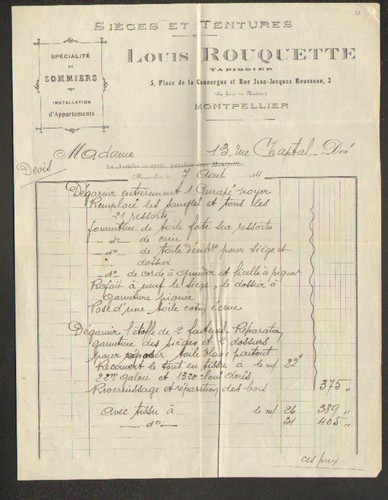 SIÈGES ET TENTURES
SPÉCIALITÉ
DE
SOMMIERS
INSTALLATION
d'Appartements
LOUIS ROUQUETTE
TAPISSIER
5, Place de la Canourgue et Rue Jean-Jacques Rousseau, 2
MONTPELLIER
Devis
Madame
13, rue Chaptal
7 Août
Dégarnir entièrement 1 Canapé noyer
Remplacé les sangles et tous les
21 ressorts
fourniture de toile forte sur ressorts
— do — de crin
— do — de toile pour siège et
dossier
— do de corde à guinder et ficelle à piquer
Refait à neuf le siège, le dossier à
Garniture piquée
Pose d'une toile coton écrue
Dégarnir l'étoffe de 2 fauteuils Réparation
garniture des sièges et 2 dossiers
pour reposer toile blanc partout
Recouvert le tout en tissu à le m/ 22f
22m galon et 1320 clous dorés
Revernissage et réparation des bois 375 "
Avec tissu à le m/ 26 389 "
— do — 24 405 "
ces prix